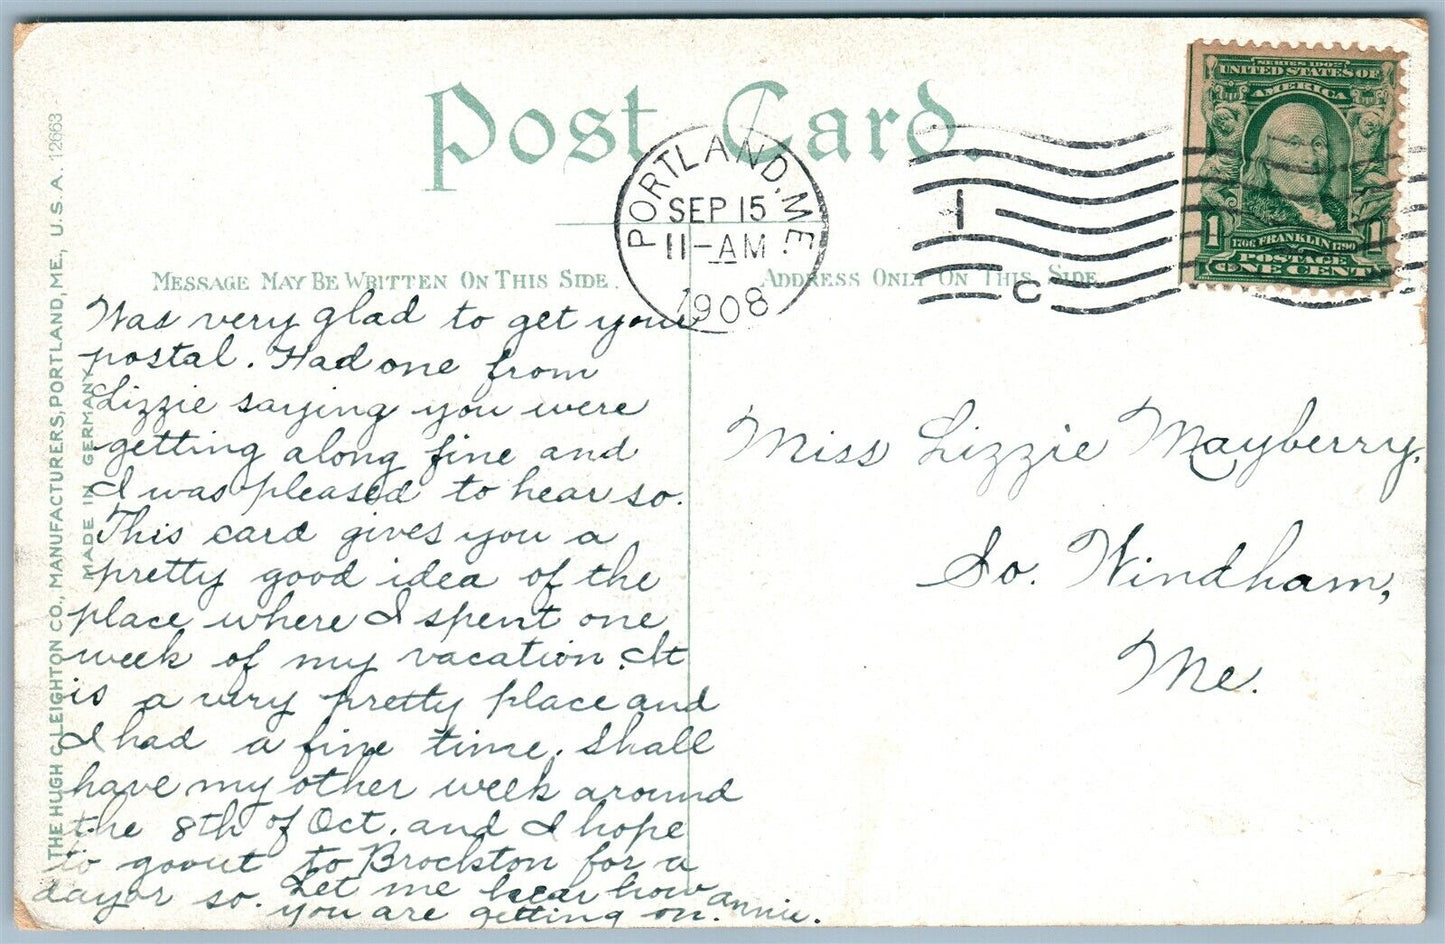 Post Card.
PORTLAND, ME.
SEP 15
11-AM
1908
1
C
SERIES 1902
UNITED STATES OF
AMERICA
1706 FRANKLIN 1790
1 1
POSTAGE
ONE CENT
MESSAGE MAY BE WRITTEN ON THIS SIDE.
ADDRESS ONLY ON THIS SIDE
THE HUGH C. LEIGHTON CO., MANUFACTURERS, PORTLAND, ME., U.S.A. 12663
MADE IN GERMANY
Was very glad to get your
postal. Had one from
Lizzie saying you were
getting along fine and
I was pleased to hear so.
This card gives you a
pretty good idea of the
place where I spent one
week of my vacation. It
is a very pretty place and
I had a fine time. Shall
have my other week around
the 8th of Oct. and I hope
to go out to Brockton for a
day or so. Let me hear how
you are getting on. Annie.
Miss Lizzie Mayberry,
So. Windham,
Me.